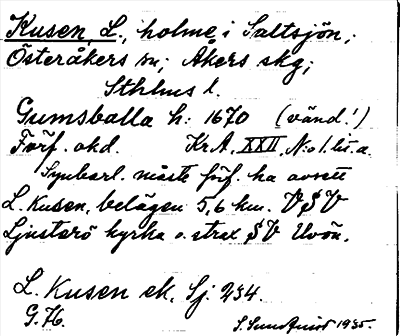 Kusen, L., holme i Saltsjön;
Österåkers sn; Åkers skg;
Sthlms l.
Gumsballa h: 1670 (vänd!)
Förf. okd. KrA, XXII, N:o 1. lit. a.
Synbarl. måste förf. ha avsett
L. Kusen, belägen 5,6 km. VSV
Ljusterö kyrka o. strax SV Uvön.
L. Kusen ek. Sj. 234.
G. 76. 1935.